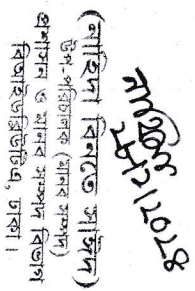 (নাহিদা বিনতে আমিন)
উপ-পরিচালক (মানব সম্পদ)
প্রশাসন ও মানব সম্পদ বিভাগ
বিআইডব্লিউটিএ, ঢাকা।